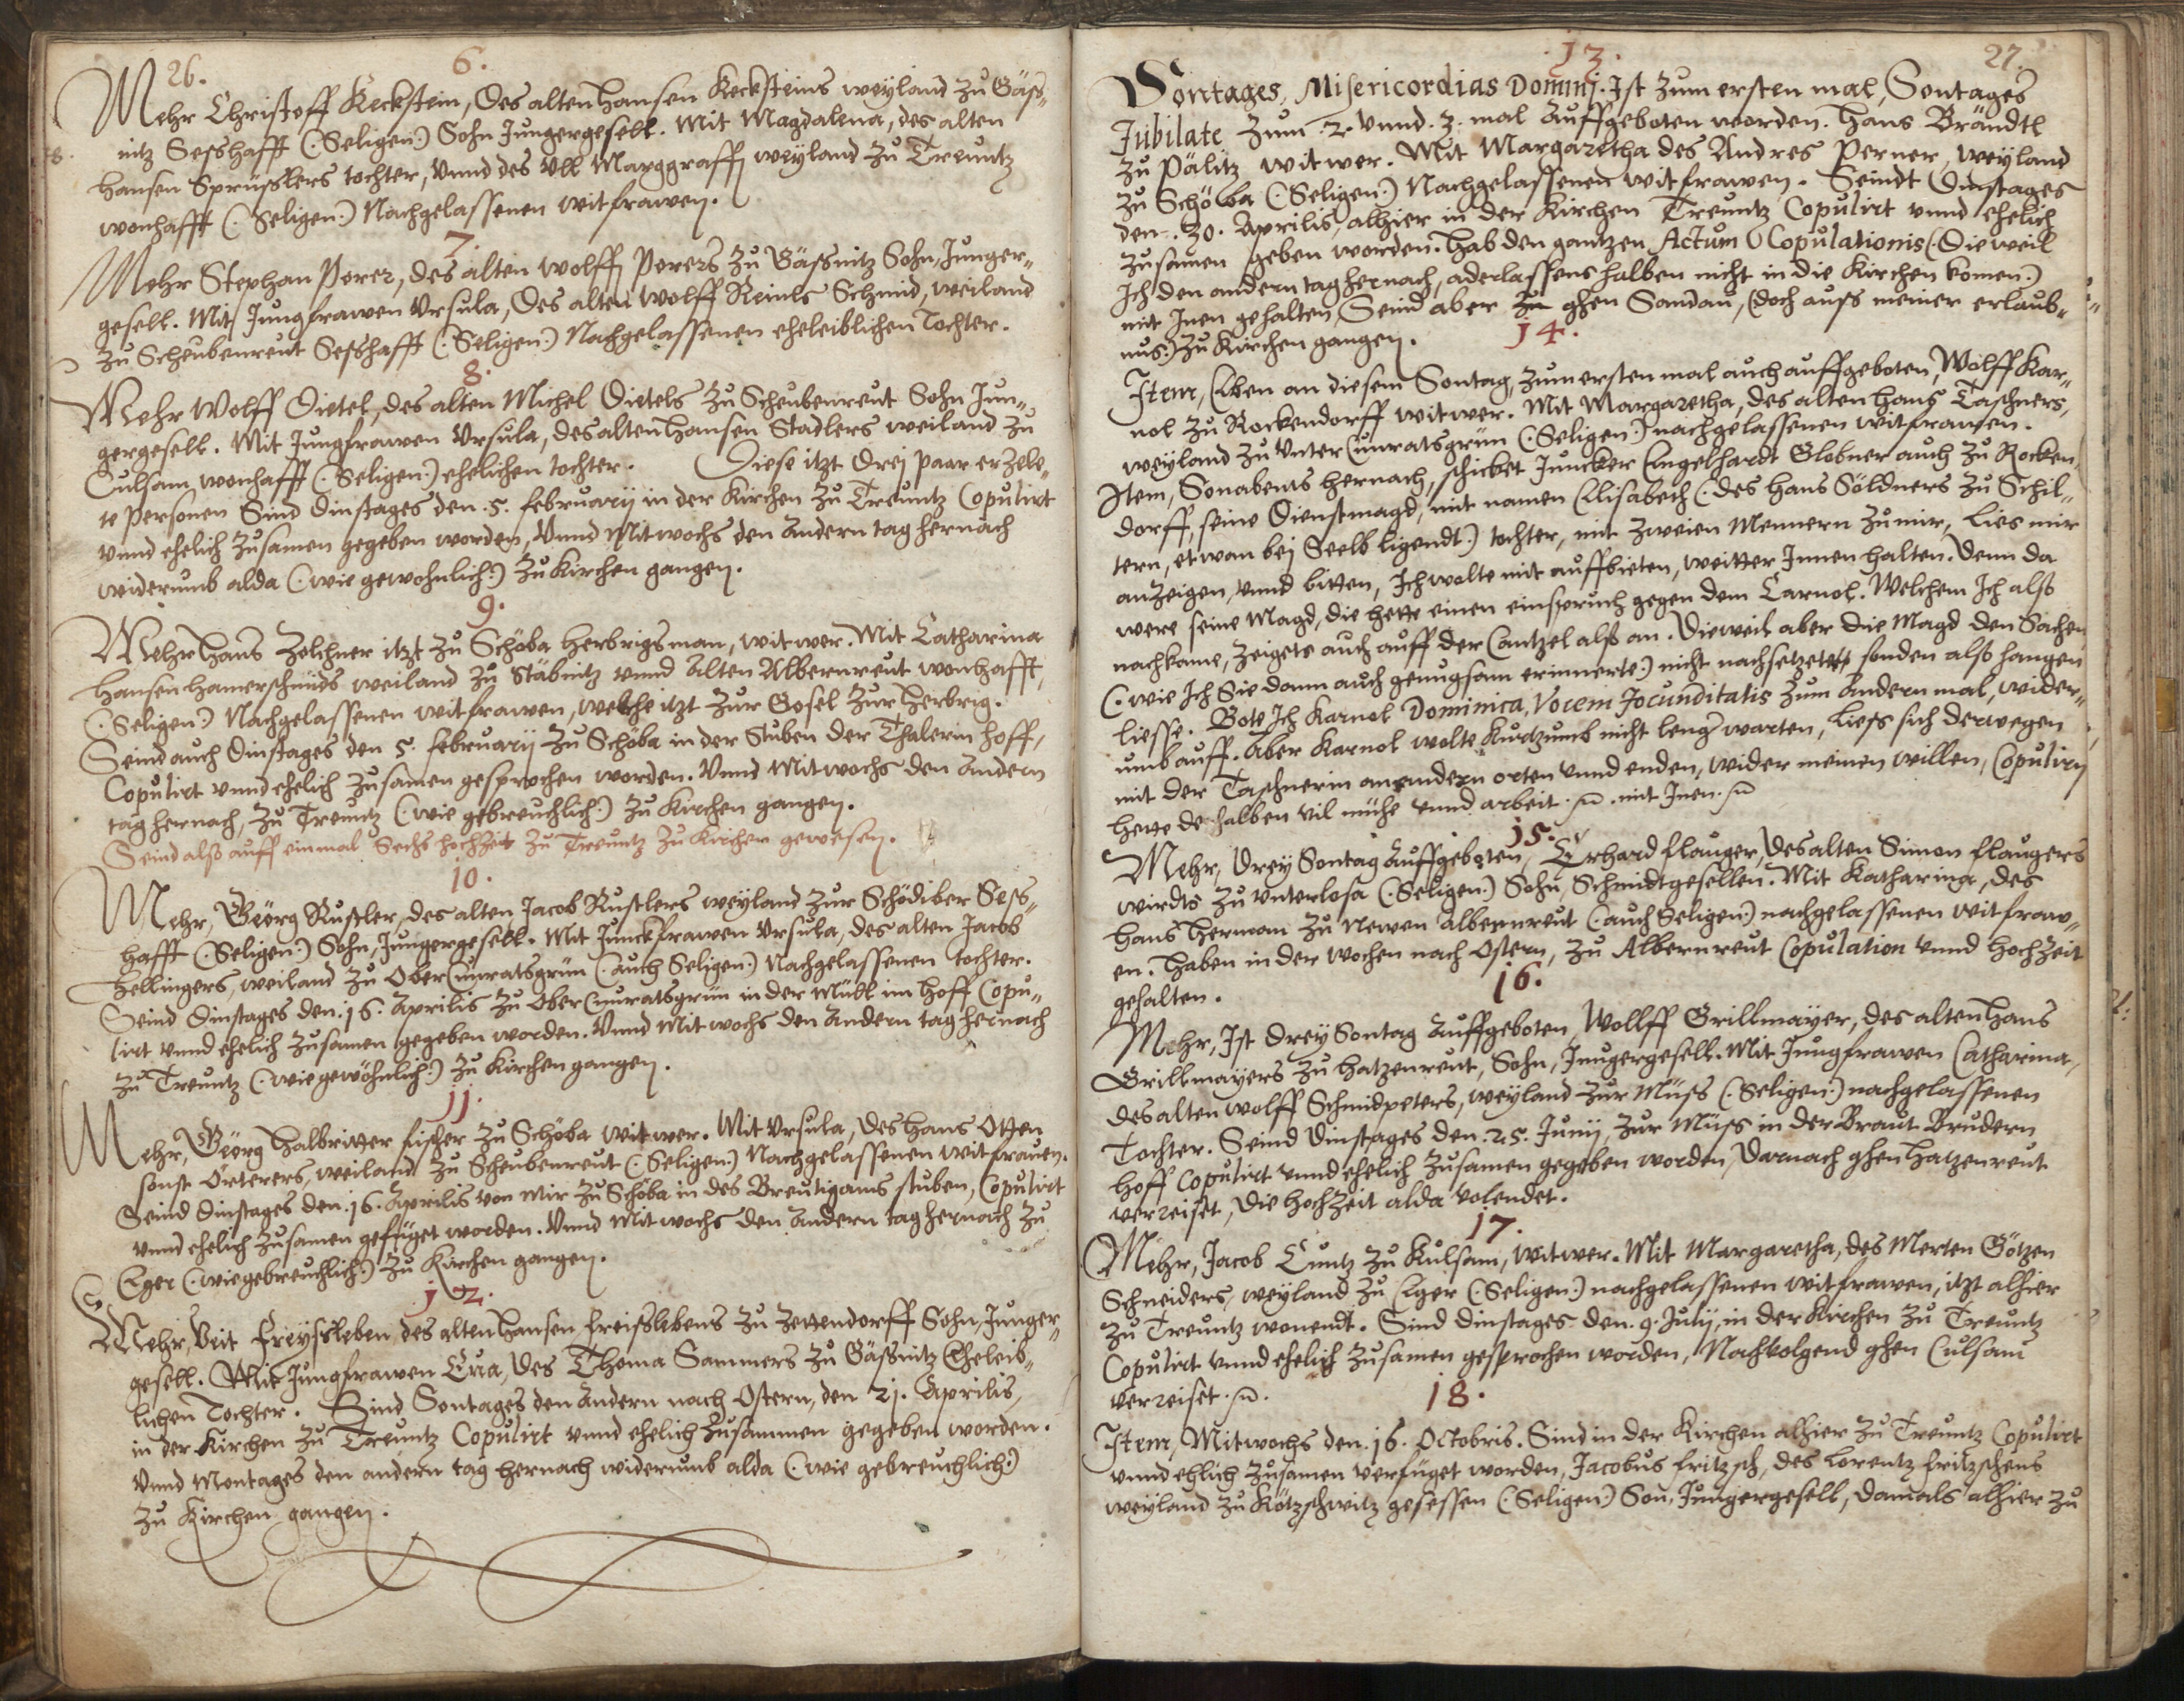 26.
6.
Mehr Christoff Keckstein, des alten Hansen Kecksteins weyland zu Gäß„
nitz Seßhafft (:Seligen:) Sohn Jungergesell. Mit Magdalena, des alten
Hansen Sprüßlers tochter, vnnd des Vll Marggraffen weyland zu Treunitz
wonhafft (:Seligen:) Nachgelassenen witfrawen.
7.
Mehr Stephan Perer, des alten Wolffen Perers zu Gäßnitz Sohn, Junger„
gesell. Mit Jungfrawen Vrsula, des alten Wolff Reinls Schmid, weiland
zu Scheubenreut Seßhafft (:Seligen:) Nachgelassenen eheleiblichen Tochter.
8.
Mehr Wolff Dietel, des alten Michel Dietels zu Scheubenreut Sohn Jun„
gergesell. Mit Jungfrawen Vrsula, des alten Hansen Stadlers weiland zu
Culsam wonhafft (:Seligen:) ehelichen tochter. Diese itzt drej paar erzele„
te Personen Sind Dinstages den .5. februarij in der Kirchen zu Treuntz Copulirt
vnnd ehelich zusamen gegeben worden, Vnnd Mitwochs den Andern tag hernach
widerumb alda (:wie gewohnlich:) zu Kirchen gangen.
9.
Mehr Hans Zelchner itzt zu Schöba Herbrigsman, witwer. Mit Catharina
Hansen Hamerschmids weiland zu Stäbnitz vnnd Alten Albernreut wonhafft,
(:Seligen:) Nachgelassenen witfrawen, welche itzt zur Gosel zur Herbrig.
Seind auch Dinstages den 5. februarij zu Schöba in der Stuben der Thalerin hoff,
Copulirt vnnd ehelich zusamen gesprochen worden. Vnnd Mitwochs den Andern
tag hernach, zu Treuntz (:wie gebreuchlich:) zu Kirchen gangen.
Seind alß auff einmal Sechs hochzeit zu Treuntz zu Kirchen gewesen.
10.
Mehr, Geörg Rustler, des alten Jacob Rustlers weyland zur Schödiber Seß„
hafft (:Seligen:) Sohn, Jungergesell. Mit Junckfrawen Vrsula, des alten Jacob
Hellingers, weiland zu Ober Cunratsgrün (:auch Seligen:) Nachgelassenen tochter.
Seind Dinstages den .16. Aprilis zu Ober Cunratsgrün in der Müll im Hoff Copu„
lirt vnnd ehelich zusamen gegeben worden. Vnnd Mitwochs den Andern tag hernach
zu Treuntz (:wie gewöhnlich:) zu Kirchen gangen.
11.
Mehr, Geörg Halbritter fischer zu Schöba witwer. Mit Vrsula, des Hans Otten
sonst Örterers, weiland zu Scheubenreut (:Seligen:) Nachgelassenen witfrauen.
Seind Dinstages den .16. Aprilis von mir zu Schöba in des Breutigams stuben, Copulirt
vnnd ehelich zusamen gefüget worden. Vnnd Mitwochs den Andern tag hernach zu
Eger (:wie gebreuchlich:) zu Kirchen gangen.
12.
Mehr, Veit Freyßleben, des alten Hansen Freißlebens zu Zettendorff Sohn, Junger„
gesell. Mit Jungfrawen Eua, des Thoma Sammers zu Gäßnitz Eheleib„
lichen Tochter. Sind Sontages den Andern nach Ostern, den 21. Aprilis,
in der Kirchen zu Treuntz Copulirt vnnd ehelich zusammen gegeben worden.
Vnnd Montages den andern tag hernach widerumb alda (:wie gebreuchlich:)
zu Kirchen gangen.
27.
13.
Sontages, Misericordias Dominj. Ist zum ersten mal, Sontages
Jubilate zum .2. vnnd .3. mal Auffgeboten worden. Hans Brändtl
zu Pälitz witwer. Mit Margaretha des Andres Perner, weyland
zu Schöba (:Seligen:) Nachgelassenen witfrawen. Seindt Dinstages
den .30. Aprilis, alhier in der Kirchen Treuntz Copulirt vnnd ehelich
zusamen geben worden. Hab den gantzen Actum Copulationis (:Dieweil
Ich den andern tag hernach, aderlassens halben nicht in die Kirchen komen:)
mit Inen gehalten, Seind aber zu ghen Sandau, (doch auß meiner erlaub„
nus:) zu Kirchen gangen.
14.
Item, Eben an diesem Sontag, zum ersten mal auch auffgeboten, Wolff Kar„
nol zu Rockendorff witwer. Mit Margaretha, des alten Hans Taschners,
weyland zu Vnter Cunratsgrün (:Seligen:) nachgelassenen witfrawen.
Item, Sonabents hernach, schicket Juncker Engelhardt Globner auch zu Rocken„
dorff, seine Dienstmagd, mit namen Elisabeth (:des Hans Söldners zu Schil„
tern, etwan bej Seelb ligendt:) tochter, mit zweien Mennern zu mir, Lies mir
anzeigen, vnnd bitten, Ich wolte mit auffbieten, weitter Innen halten. Denn da
were seine Magd, die hette einen einspruch gegen dem Carnol. Welchem Ich alß
nachkame, Zeigete auch auff der Cantzel alß an. Dieweil aber die Magd den Sachen
(:wie Ich Sie dann auch genugsam erinnerte:) nicht nachsetzetet, sonden alß hangen
liesse. Bote Ich Karnol Dominica, Vocem Jocunditatis zum Andern mal, wider„
umb auff. Aber Karnol wolte kurtzumb nicht lenger warten, Ließ sich derwegen
mit der Taschnerin an andern orten vnnd enden, wider meinen willen, Copulirn
hette deshalben vil mühe vnnd arbeit. mit Inen.
15.
Mehr, Drey Sontag Auffgeboten, Erhard flauger, des alten Simon flaugers
wirdts zu Vnterlosa (:Seligen:) Sohn, Schmidtgesellen. Mit Katharina, des
Hans Herman zu Newen Albernreut (:auch Seligen:) nachgelassenen witfraw„
en. Haben in der wochen nach Ostern, zu Albernreut Copulation vnnd Hochzeit
gehalten.
16.
Mehr, Ist Drey Sontag Auffgeboten, Wolff Grillmayer, des alten Hans
Grillmayers zu Hatzenreut, Sohn, Jungergesell. Mit Jungfrawen Catharina,
des alten Wolff Schmidpeters, weyland zur Müß (:Seligen:) nachgelassenen
Tochter. Seind Dinstages den .25. Junij, zur Müß in der Braut Brudern
Hoff Copulirt vnnd ehelich zusamen gegeben worden, Darnach ghen Hatzenreut
verreiset, Die Hochzeit alda volendet.
17.
Mehr, Jacob Cuntz zu Kulsam, witwer. Mit Margaretha, des Merten Götzen
Schneiders, weyland zu Eger (:Seligen:) nachgelassenen witfrawen, itzt alhier
zu Treuntz wonendt. Sind Dinstages den .9. Julij, in der Kirchen zu Treuntz
Copulirt vnnd ehelich zusamen gesprochen worden, Nachvolgend ghen Culsam
verreiset.
18.
Item, Mitwochs den .16. Octobris. Sind in der Kirchen alhier zu Treuntz Copulirt
vnnd ehlich zusamen verfüget worden, Jacobus fritzsch, des Lorentz fritzschens
weyland zu Kötzschwitz gesessen (:Seligen:) Son, Jungergesell, damals alhier zu